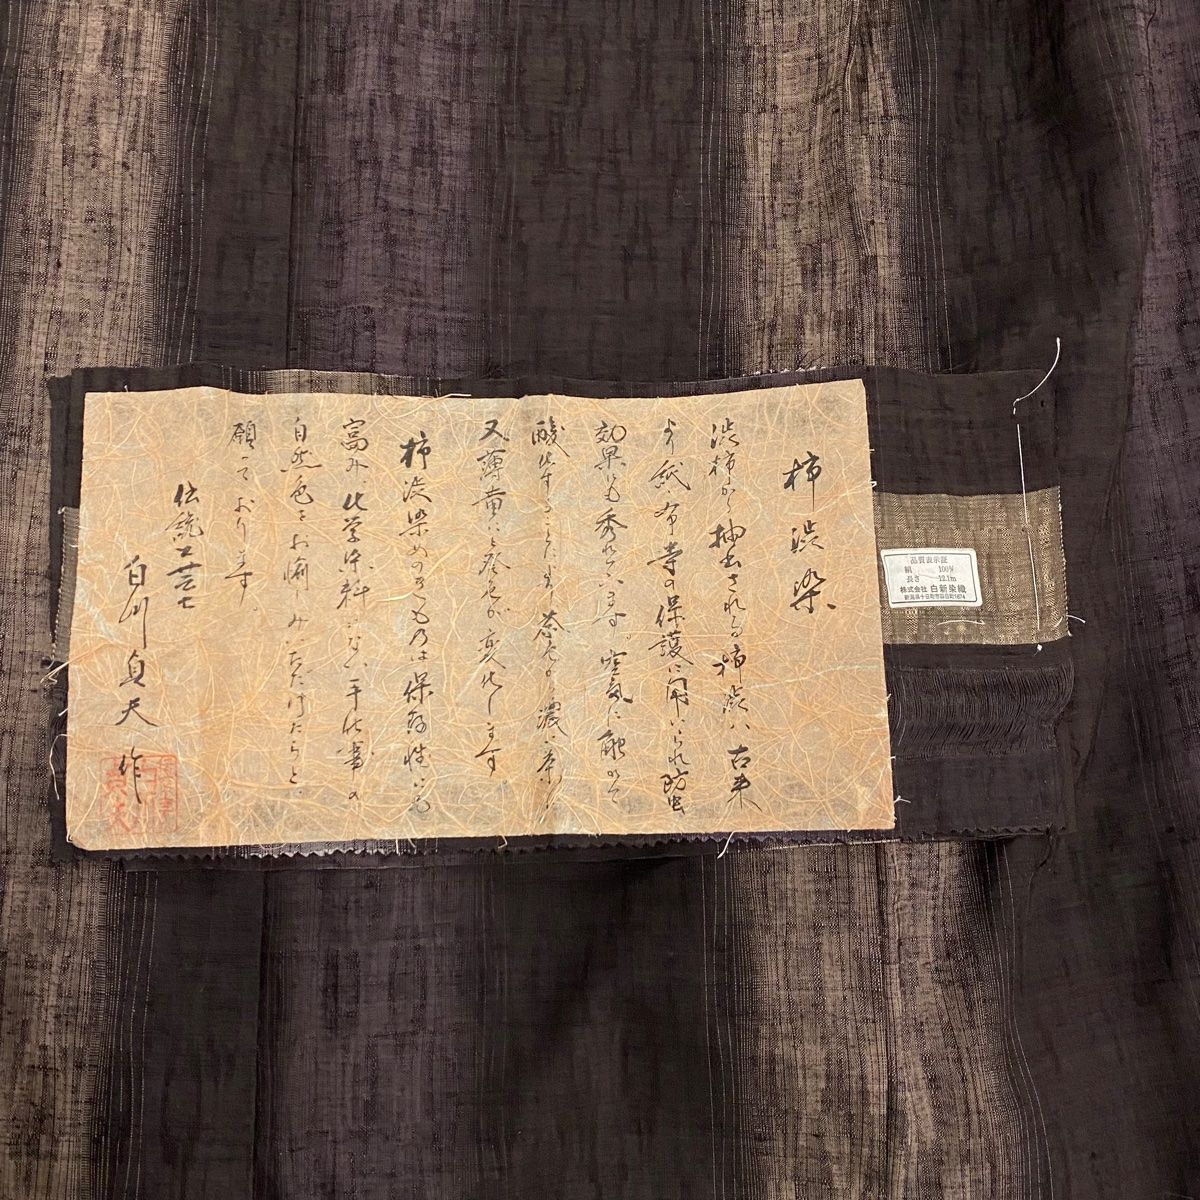 柿渋染
渋柿から抽出される柿渋は古来
より紙・布等の保護に用いられ防虫
効果にも秀れています。空気に触れて
酸化することにより茶色から濃い茶に
又薄黄にと発色が変化します。
柿渋染めのきものは保存性にも
富み、化学染料にない手仕事の
自然色をお愉しみいただけたらと、
願っております
伝統工芸士
白川貞夫 作
品質表示証
絹 100%
長さ 12.1m
株式会社 白新染織
新潟県十日町市四日町1674